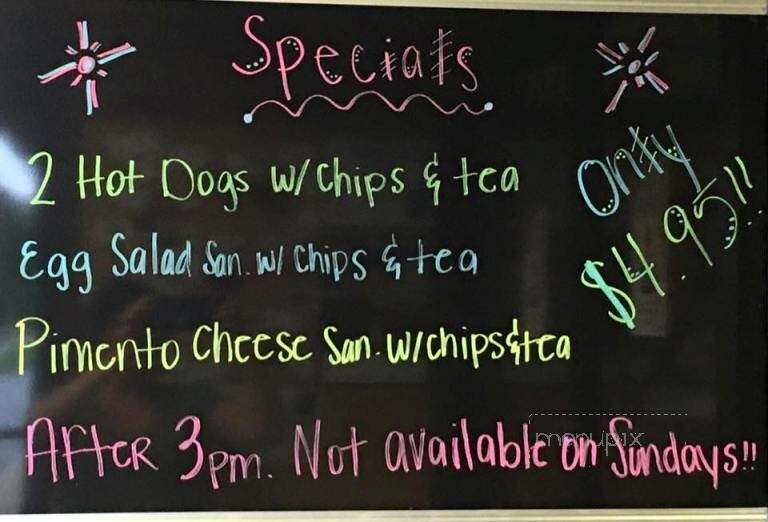 Specials
2 Hot Dogs w/ chips & tea
Only
$4.95!!
Egg Salad San. w/ chips & tea
Pimento Cheese San. w/chips & tea
After 3pm. Not available on Sundays!!
menupix